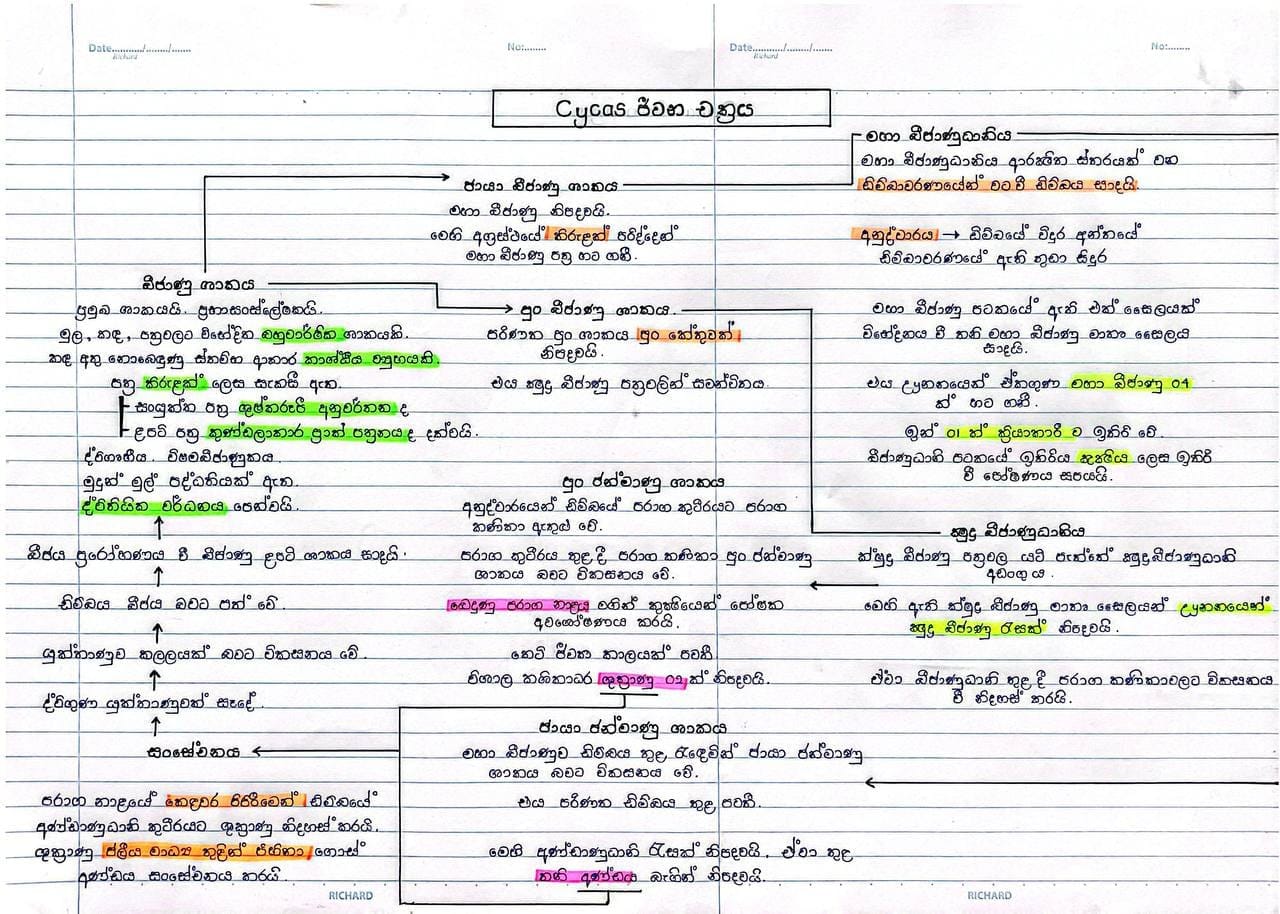 Date.........../......../.......
Richard
No:........
Date.........../......../.......
Richard
No:........
Cycas ජීවන චක්‍රය
ජායා බීජාණු ශාකය
මහා බීජාණු නිපදවයි.
මෙහි අග්‍රස්ථයේ කිරුළක් පරිද්දෙන්
මහා බීජාණු පත්‍ර හට ගනී.
මහා බීජාණුධානිය
මහා බීජාණුධානිය ආරක්ෂිත ස්තරයක් වන
ඩිම්බාවරණයෙන් වට වී ඩිම්බය සාදයි.
අනුද්වාරය → ඩිම්බයේ විදුර අන්තයේ
ඩිම්බාවරණයේ ඇති කුඩා සිදුර
බීජාණු ශාකය
ප්‍රමුඛ ශාකයයි. ප්‍රභාසංස්ලේෂකයි.
මුල, කඳ, පත්‍රවලට විභේදිත බහුවාර්ෂික ශාකයකි.
කඳ අතු නොබෙඳුණු ස්තම්භ ආකාර කාශ්ඨීය ව්‍යුහයකි.
පත්‍ර කිරුළක් ලෙස සැකසී ඇත.
සංයුක්ත පත්‍ර ශුෂ්කරූපී අනුවර්තන ද
ළපටි පත්‍ර කුණ්ඩලාකාර ප්‍රාක් පත්‍රනය ද දක්වයි.
ද්විගෘහීය. විෂමබීජාණුකය.
මුදුන් මුල් පද්ධතියක් ඇත.
ද්විතීයික වර්ධනය පෙන්වයි.
පුං බීජාණු ශාකය.
පරිණත පුං ශාකය පුං කේතුවක්
නිපදවයි.
එය ක්ෂුද්‍ර බීජාණු පත්‍රවලින් සමන්විතය.
මහා බීජාණු පටකයේ ඇති එක් සෛලයක්
විභේදනය වී තනි මහා බීජාණු මාතෘ සෛලය
සාදයි.
එය ඌනනයෙන් ඒකගුණ මහා බීජාණු 04
ක් හට ගනී.
ඉන් 01 ක් ක්‍රියාකාරී ව ඉතිරි වේ.
බීජාණුධානි පටකයේ ඉතිරිය කුක්ෂිය ලෙස ඉතිරි
වී පෝෂණය සපයයි.
ක්ෂුද්‍ර බීජාණුධානිය
ක්ෂුද්‍ර බීජාණු පත්‍රවල යටි පැත්තේ ක්ෂුද්‍රබීජාණුධානි
අඩංගු ය.
මෙහි ඇති ක්ෂුද්‍ර බීජාණු මාතෘ සෛලයන් ඌනනයෙන්
ක්ෂුද්‍ර බීජාණු රැසක් නිපදවයි.
ඒවා බීජාණුධානි තුළ දී පරාග කණිකාවලට විකසනය
වී නිදහස් කරයි.
පුං ජන්මාණු ශාකය
අනුද්වාරයෙන් ඩිම්බයේ පරාග කුටීරයට පරාග
කණිකා ඇතුළු වේ.
පරාග කුටීරය තුළ දී පරාග කණිකා පුං ජන්මාණු
ශාකය බවට විකසනය වේ.
බෙදුණු පරාග නාළය මගින් කුක්ෂියෙන් පෝෂක
අවශෝෂණය කරයි.
කෙටි ජීවන කාලයක් පවතී
විශාල කශිකාධර ශුක්‍රාණු 02 ක් නිපදවයි.
ජායා ජන්මාණු ශාකය
මහා බීජාණුව ඩිම්බය තුළ රැඳෙමින් ජායා ජන්මාණු
ශාකය බවට විකසනය වේ.
එය පරිණත ඩිම්බය තුළ පවතී.
මෙහි අණ්ඩාණුධානි රැසක් නිපදවයි. ඒවා තුළ
තනි අණ්ඩය බැගින් නිපදවයි.
බීජය ප්‍රරෝහණය වී බීජාණු ළපටි ශාකය සාදයි.
ඩිම්බය බීජය බවට පත් වේ.
යුක්තාණුව කලලයක් බවට විකසනය වේ.
ද්විගුණ යුක්තාණුවක් සෑදේ.
සංසේචනය
පරාග නාළයේ කෙළවර පිපිරීමෙන් ඩිම්බයේ
අණ්ඩාණුධානි කුටීරයට ශුක්‍රාණු නිදහස් කරයි.
ශුක්‍රාණු ජලීය මාධ්‍ය තුළින් පිහිනා ගොස්
අණ්ඩය සංසේචනය කරයි.
RICHARD
RICHARD